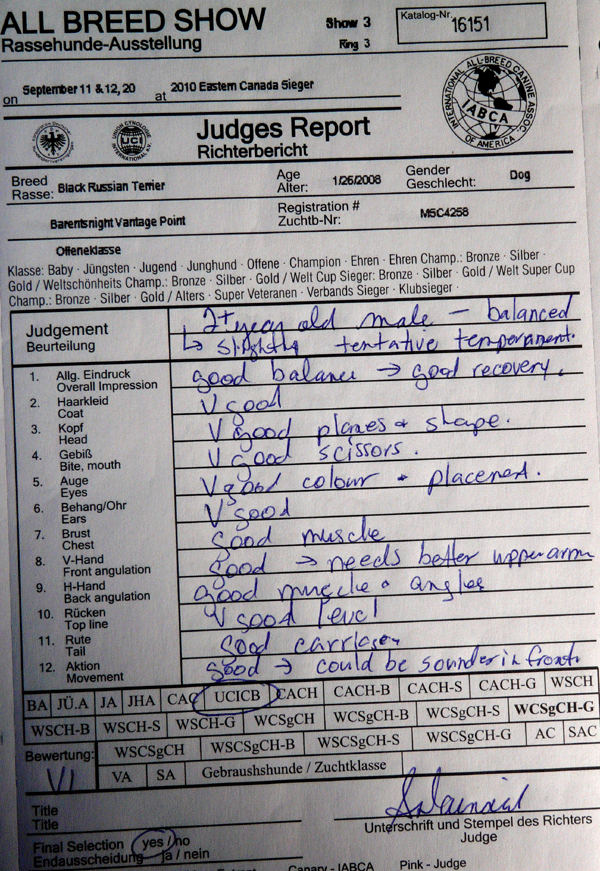 ALL BREED SHOW
Rassehunde-Ausstellung
Show 3
Ring 3
Katalog-Nr. 16151
on September 11 & 12, 20 at 2010 Eastern Canada Sieger
INTERNATIONAL ALL-BREED CANINE ASSOC. OF AMERICA
IABCA
UCI
Judges Report
Richterbericht
Breed Rasse: Black Russian Terrier
Age Alter: 1/26/2008
Gender Geschlecht: Dog
Barentsnight Vantage Point
Registration # Zuchtb-Nr: MSC4258
Offeneklasse
Klasse: Baby · Jüngsten · Jugend · Junghund · Offene · Champion · Ehren · Ehren Champ.: Bronze · Silber ·
Gold / Weltschönheits Champ.: Bronze · Silber · Gold / Welt Cup Sieger: Bronze · Silber · Gold / Welt Super Cup
Champ.: Bronze · Silber · Gold / Alters · Super Veteranen · Verbands Sieger · Klubsieger ·
Judgement Beurteilung
2+ year old male – balanced
↳ slightly tentative temperament.
1. Allg. Eindruck Overall Impression good balance → good recovery.
2. Haarkleid Coat V good
3. Kopf Head V good planes + shape.
4. Gebiß Bite, mouth V good scissors.
5. Auge Eyes V good colour + placement.
6. Behang/Ohr Ears V good
7. Brust Chest Good muscle
8. V-Hand Front angulation Good → needs better upper arm
9. H-Hand Back angulation Good muscle + angles
10. Rücken Top line V good level
11. Rute Tail Good carriage
12. Aktion Movement good → could be sounder in front.
BA JÜ.A JA JHA CAC UCICB CACH CACH-B CACH-S CACH-G WSCH
WSCH-B WSCH-S WSCH-G WCSgCH WCSgCH-B WCSgCH-S WCSgCH-G
Bewertung: WSCSgCH WSCSgCH-B WSCSgCH-S WSCSgCH-G AC SAC
V1 VA SA Gebraushshunde / Zuchtklasse
Title
Title
Unterschrift und Stempel des Richters
Judge
Final Selection yes / no
Endausscheidung ja / nein
Canary - IABCA Pink - Judge